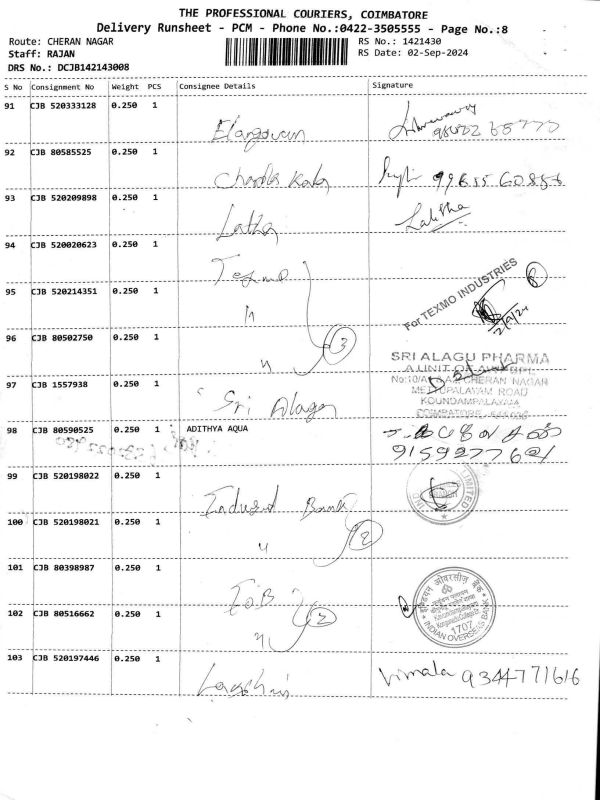 THE PROFESSIONAL COURIERS, COIMBATORE
Delivery Runsheet - PCM - Phone No.:0422-3505555 - Page No.:8
Route: CHERAN NAGAR
RS No.: 1421430
Staff: RAJAN
RS Date: 02-Sep-2024
DRS No.: DCJB142143008
S No Consignment No Weight PCS Consignee Details Signature
91 CJB 520333128 0.250 1 Elangovan
92 CJB 80585525 0.250 1 Chandra Kala
93 CJB 520209898 0.250 1 Latha Lalitha
94 CJB 520020623 0.250 1 Texmo
For TEXMO INDUSTRIES
2/9/24
95 CJB 520214351 0.250 1 "
96 CJB 80502750 0.250 1 " 3
SRI ALAGU PHARMA
97 CJB 1557938 0.250 1 Sri Alagu
CHERAN NAGAR
METTUPALAYAM ROAD
KOUNDAMPALAYAM
COIMBATORE
98 CJB 80590525 0.250 1 ADITHYA AQUA
9159277621
99 CJB 520198022 0.250 1 Indusind Bank
LIMITED
100 CJB 520198021 0.250 1 " 2
101 CJB 80398987 0.250 1 IOB
इंडियन ओवरसीज़ बैंक
1707
INDIAN OVERSEAS BANK
102 CJB 80516662 0.250 1 " 2
103 CJB 520197446 0.250 1 Vimala 9344771616